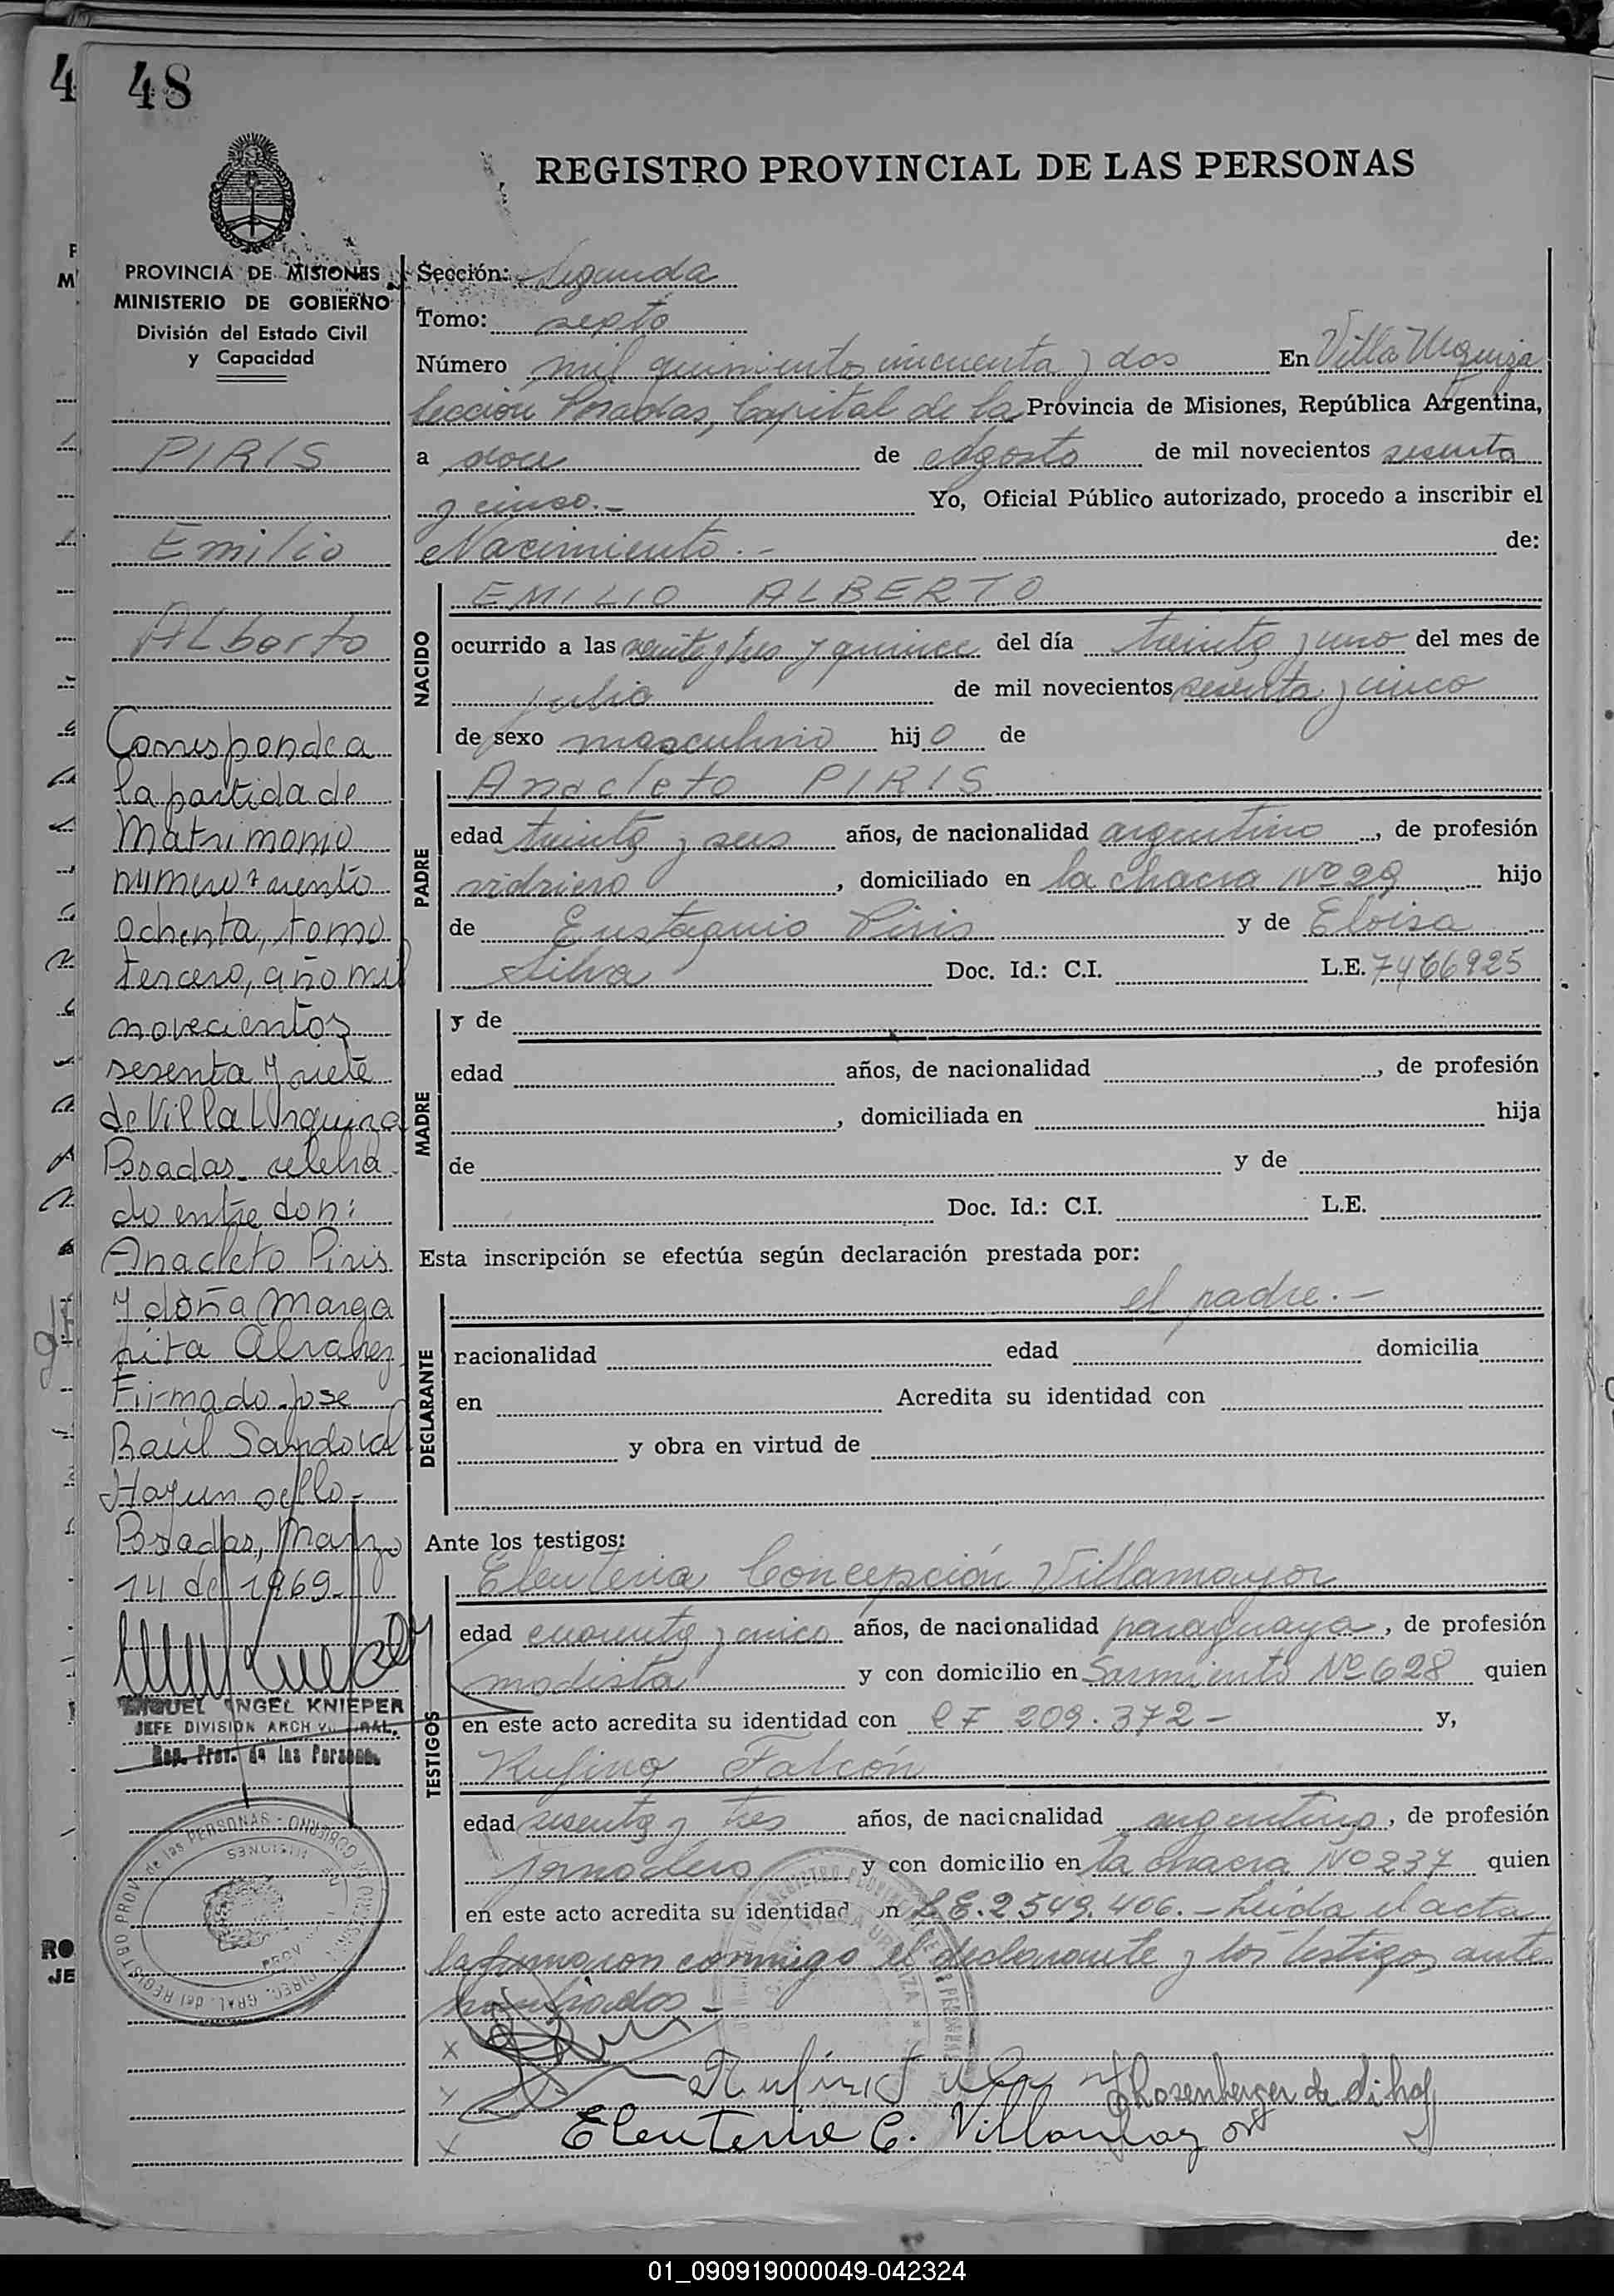 48
REGISTRO PROVINCIAL DE LAS PERSONAS
PROVINCIA DE MISIONES
MINISTERIO DE GOBIERNO
División del Estado Civil
y Capacidad
PIRIS
Emilio
Alberto
Corresponde a
la partida de
Matrimonio
numero: ciento
ochenta, tomo
tercero, año mil
novecientos
sesenta y siete
de Villa Urquiza
Posadas celebra
do entre don:
Anacleto Piris
y doña Marga
rita Alvarez
Firmado Jose
Raúl Sandoval
Hay un sello-
Posadas, Marzo
14 de 1969-
MIGUEL ANGEL KNIEPER
JEFE DIVISION ARCH GRAL.
Reg. Prov. de las Personas
Sección: Segunda
Tomo: sexto
Número mil quinientos cincuenta y dos En Villa Urquiza
Sección Posadas, Capital de la Provincia de Misiones, República Argentina,
a doce de Agosto de mil novecientos sesenta
y cinco.- Yo, Oficial Público autorizado, procedo a inscribir el
Nacimiento.- de:
NACIDO
EMILIO ALBERTO
ocurrido a las veinte y tres y quince del día treinta y uno del mes de
julio de mil novecientos sesenta y cinco
de sexo masculino hijo de
PADRE
Anacleto PIRIS
edad treinta y seis años, de nacionalidad argentino, de profesión
vidriero, domiciliado en la chacra Nº 29 hijo
de Eustaquio Piris y de Eloisa
Silva Doc. Id.: C.I. L.E. 7466925
MADRE
y de
edad años, de nacionalidad , de profesión
, domiciliada en hija
de y de
Doc. Id.: C.I. L.E.
Esta inscripción se efectúa según declaración prestada por:
DECLARANTE
el padre.-
nacionalidad edad domicilia
en Acredita su identidad con
y obra en virtud de
Ante los testigos:
TESTIGOS
Eleuteria Concepción Villamayor
edad cuarenta y cinco años, de nacionalidad paraguaya, de profesión
modista y con domicilio en Sarmiento Nº 628 quien
en este acto acredita su identidad con 209.372- y,
Rufino Falcón
edad sesenta y tres años, de nacionalidad argentino, de profesión
jornalero y con domicilio en la chacra Nº 237 quien
en este acto acredita su identidad on L.E. 2.549.406.- Leída el acta
la firmaron conmigo el declarante y los testigos ante
nombrados-
Rosenberger de Dihof
Eleuteria C. Villamayor
01_090919000049-042324